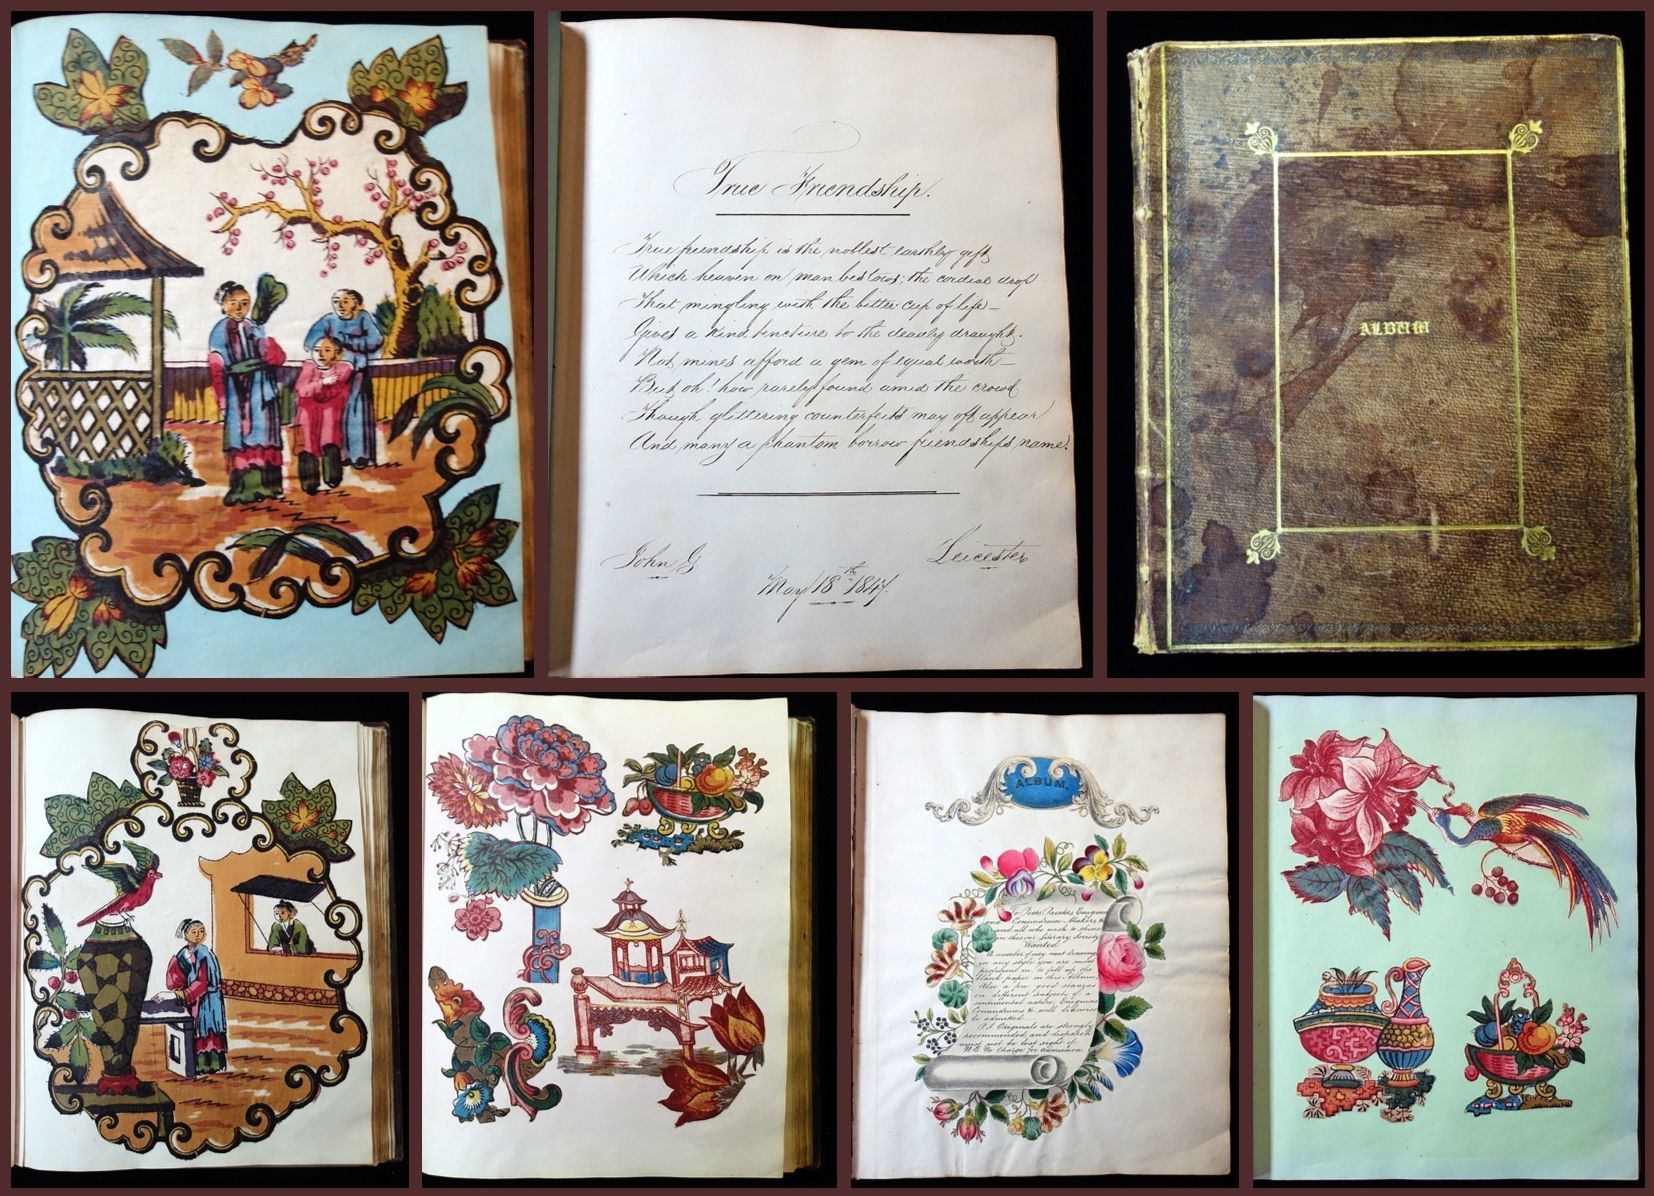 True Friendship.
True friendship is the noblest earthly gift
Which heaven on man bestows; the cordial drop
That mingling with the bitter cup of life—
Gives a kind tincture to the deadly draught.
Not mines afford a gem of equal worth—
But oh! how rarely found amid the crowd
Though glittering counterfeits may oft appear
And many a phantom borrow friendships name.
John G
Leicester
May 18th 1847.
ALBUM
ALBUM.
To Poets Painters Enigma
and Conundrum Makers &
and all who wish to shine
in this our Literary Society
Wanted
A number of very neat drawings
in any style you are most
proficient in, to fill up the
blank paper in this Album,
Also a few good stanzas
on different subjects of a
sentimental nature, Enigmas
Conundrums & will likewise
be admitted.
P.S. Originals are strongly
recommended and
must not be lost sight of
N.B. No Charge for admission